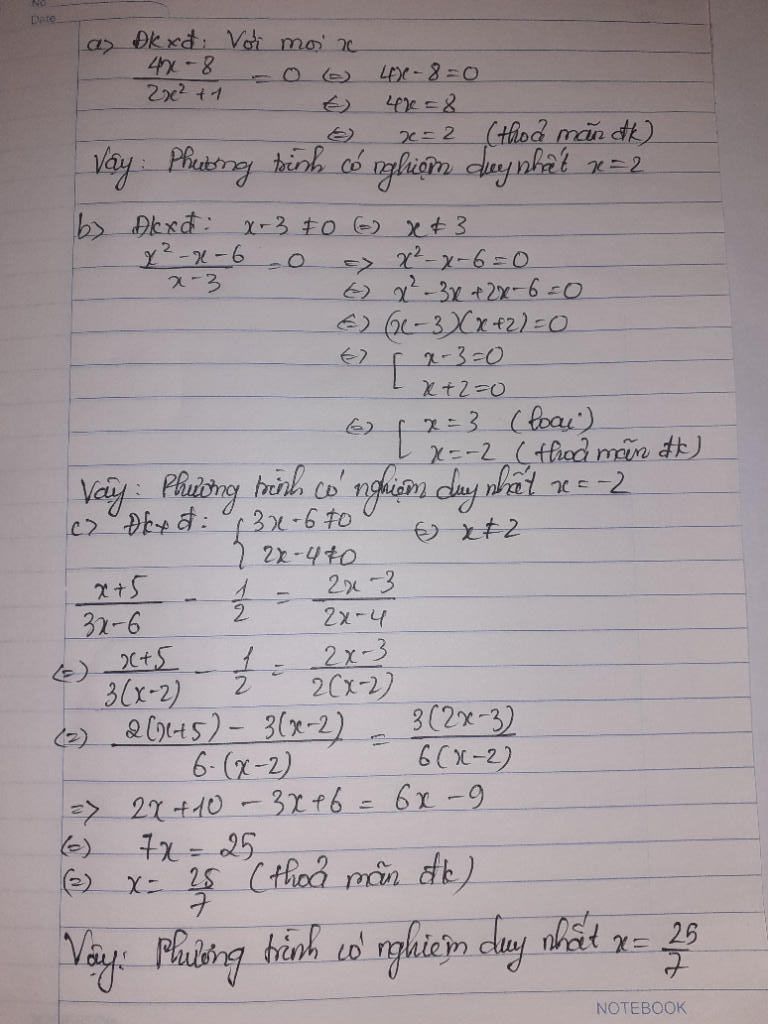 No
Date
a> Đkxđ: Với mọi x
(4x - 8)/(2x² + 1) = 0 (=) 4x - 8 = 0
(=) 4x = 8
(=) x = 2 (thoả mãn đk)
Vậy: Phương trình có nghiệm duy nhất x = 2
b> Đkxđ: x - 3 ≠ 0 (=) x ≠ 3
(x² - x - 6)/(x - 3) = 0 => x² - x - 6 = 0
(=) x² - 3x + 2x - 6 = 0
(=) (x - 3)(x + 2) = 0
(=) [ x - 3 = 0
x + 2 = 0
(=) [ x = 3 (loại)
x = -2 (thoả mãn đk)
Vậy: Phương trình có nghiệm duy nhất x = -2
c> Đkxđ: { 3x - 6 ≠ 0 (=) x ≠ 2
2x - 4 ≠ 0
(x + 5)/(3x - 6) - 1/2 = (2x - 3)/(2x - 4)
(=) (x + 5)/(3(x - 2)) - 1/2 = (2x - 3)/(2(x - 2))
(=) (2(x + 5) - 3(x - 2))/(6.(x - 2)) = (3(2x - 3))/(6(x - 2))
=> 2x + 10 - 3x + 6 = 6x - 9
(=) 7x = 25
(=) x = 25/7 (thoả mãn đk)
Vậy: Phương trình có nghiệm duy nhất x = 25/7
NOTEBOOK